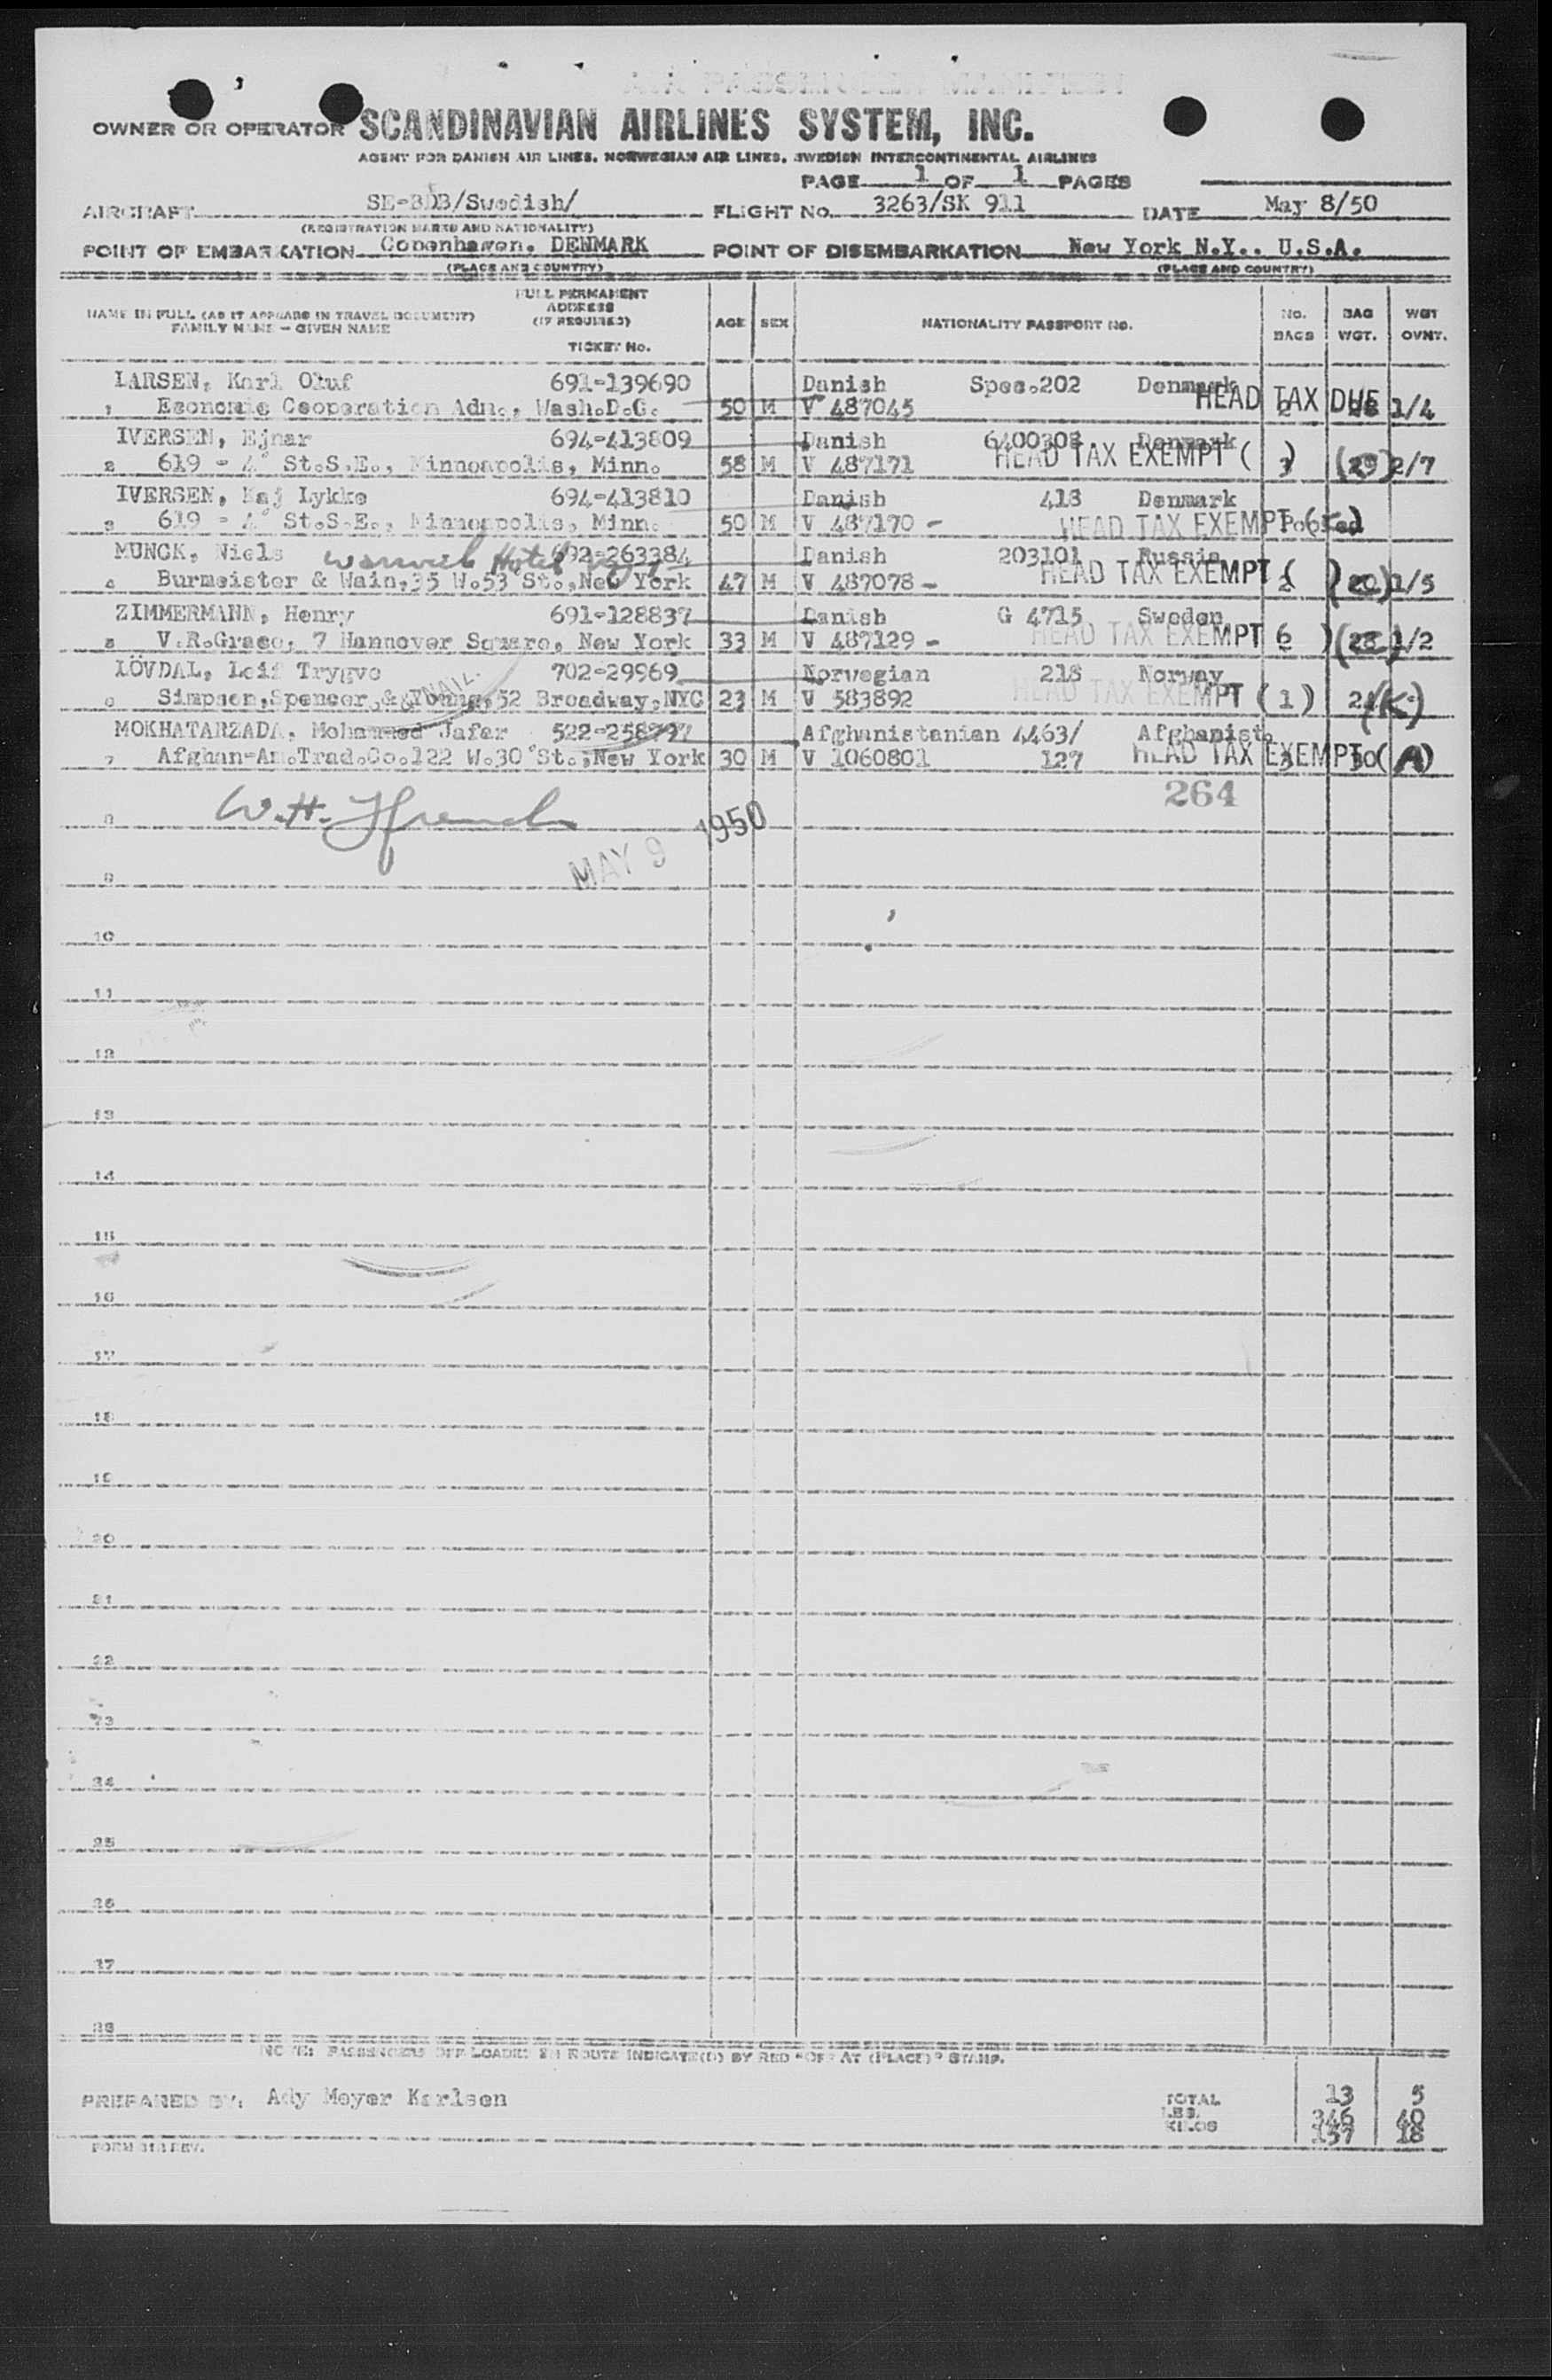 OWNER OR OPERATOR SCANDINAVIAN AIRLINES SYSTEM, INC.
AGENT FOR DANISH AIR LINES, NORWEGIAN AIR LINES, SWEDISH INTERCONTINENTAL AIRLINES
PAGE 1 OF 1 PAGES
AIRCRAFT SE-BDB/Swedish/ FLIGHT NO. 3263/SK 911 DATE May 8/50
(REGISTRATION MARKS AND NATIONALITY)
POINT OF EMBARKATION Copenhagen, DENMARK POINT OF DISEMBARKATION New York N.Y., U.S.A.
(PLACE AND COUNTRY) (PLACE AND COUNTRY)
NAME IN FULL (AS IT APPEARS IN TRAVEL DOCUMENT)
FAMILY NAME - GIVEN NAME
FULL PERMANENT
ADDRESS
(IF REQUIRED)
TICKET No.
AGE SEX NATIONALITY PASSPORT NO. No. BAGS BAG WGT. WGT OVNT.
LARSEN, Karl Oluf 691-139690 Danish Spec.202 Denmark
1 Economic Cooperation Adm., Wash.D.C. 50 M V 487045 HEAD TAX DUE 1/4
IVERSEN, Ejnar 694-413809 Danish Denmark
2 619 - 4° St.S.E., Minneapolis, Minn. 58 M V 487171 HEAD TAX EXEMPT ( ) 3 2/7
IVERSEN, Kaj Lykke 694-413810 Danish 418 Denmark
3 619 - 4° St.S.E., Minneapolis, Minn. 50 M V 487170 - HEAD TAX EXEMPT Pooled
MUNCK, Niels 692-263384 Danish 203101 Russia
Warwick Hotel
4 Burmeister & Wain,35 W.53 St.,New York 47 M V 487078 - HEAD TAX EXEMPT ( ) 2 1/5
ZIMMERMANN, Henry 691-128837 Danish G 4715 Sweden
5 V.R.Grace, 7 Hannover Square, New York 33 M V 487129 - HEAD TAX EXEMPT ( ) 1/2
LÖVDAL, Leif Trygve 702-29969 Norwegian 218 Norway
6 Simpson,Spencer & Young,52 Broadway,NYC 23 M V 583892 HEAD TAX EXEMPT (1) (K)
MOKHATARZADA, Mohammed Jafar Afghanistanian 4463/ Afghanist.
7 Afghan-Am.Trad.Co.122 W.30°St.,New York 30 M V 1060801 127 HEAD TAX EXEMPT 3 30 (A)
264
8 W.H.
MAY 9 1950
9
10
11
12
13
14
15
16
17
18
19
20
21
22
23
24
25
26
27
28
NOTE: PASSENGERS OFF LOADED EN ROUTE INDICATE(D) BY RED "OFF AT (PLACE)" STAMP.
PREPARED BY: Ady Meyer Karlsen
TOTAL 13 5
LBS. 346 40
KILOS 157 18
FORM 318 REV.